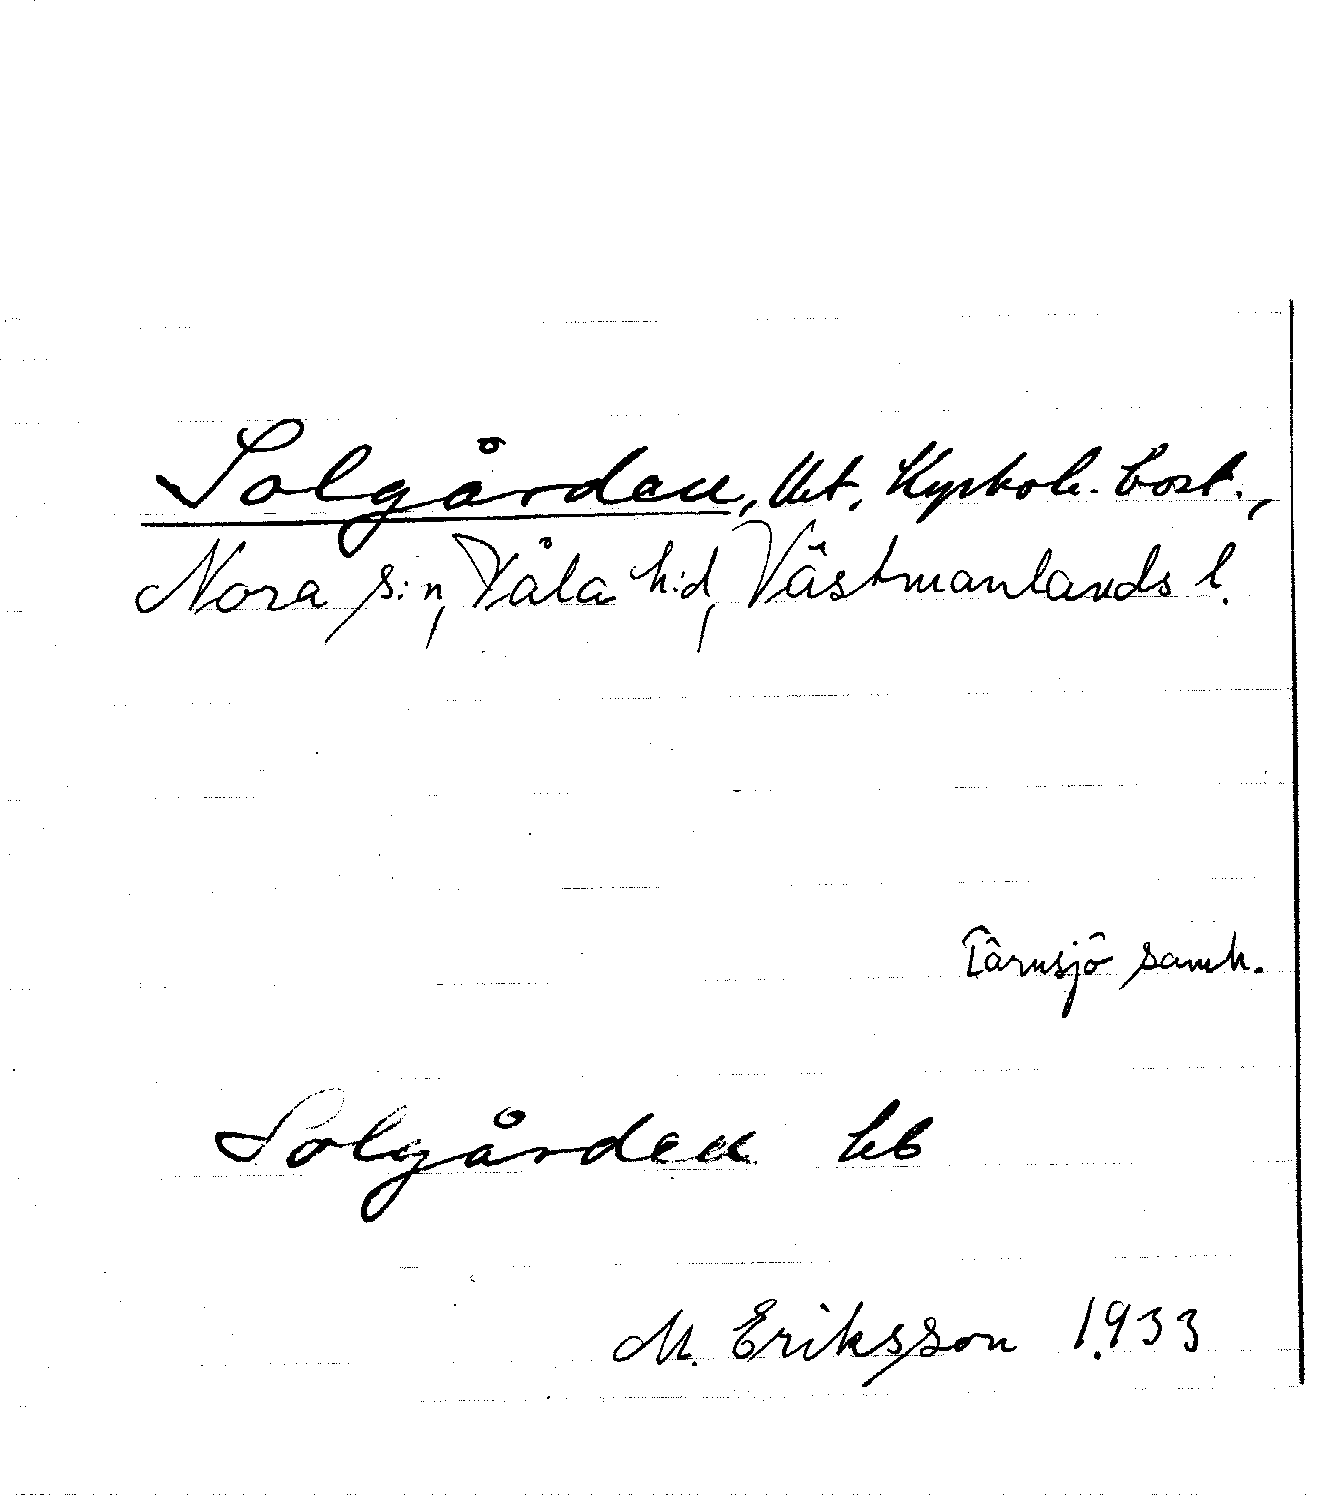 Solgården, Utt. Kyrkoh. bost.,
Nora s:n, Våla h:d, Västmanlands l.
Tärnsjö samh.
Solgården
M. Eriksson 1933